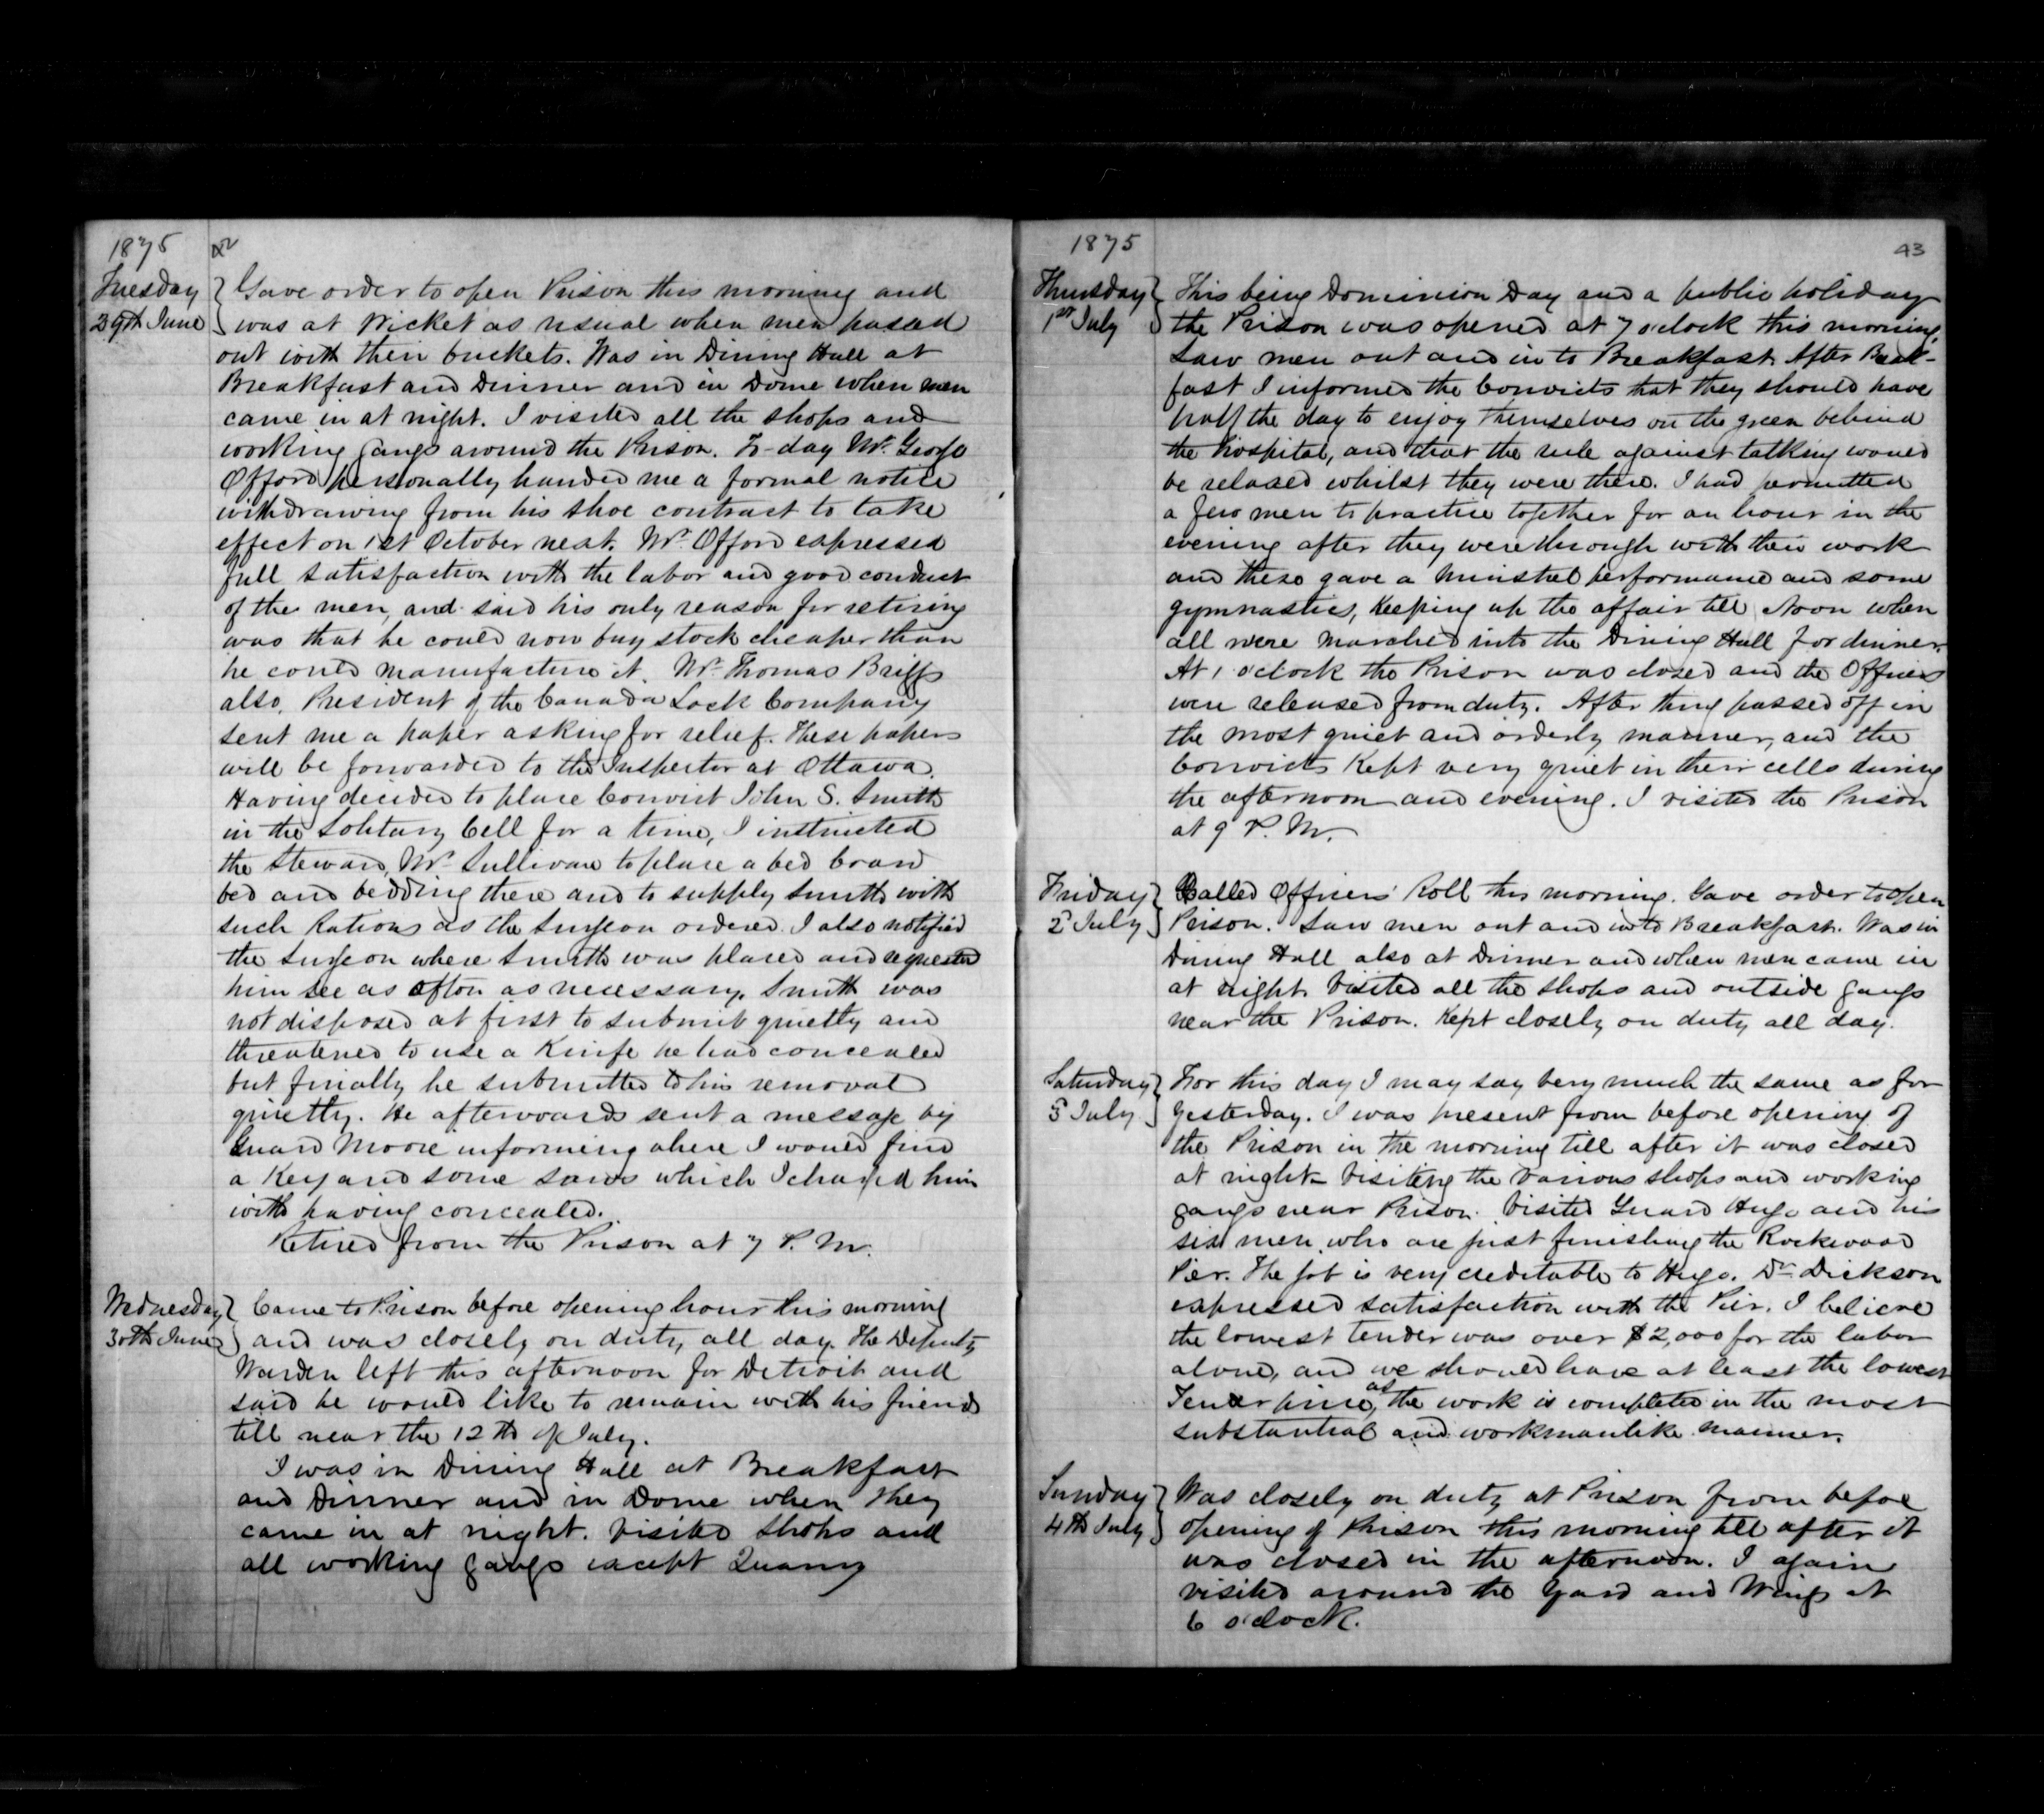 1875
Tuesday
29th June
Gave order to open Prison this morning and
was at Wicket as usual when men passed
out with their buckets. Was in Dining Hall at
Breakfast and Dinner and in Dome when men
came in at night. I visited all the shops and
working gangs around the Prison. To-day Mr. George
Offord personally handed me a formal notice
withdrawing from his shoe contract to take
effect on 1st October next. Mr. Offord expressed
full satisfaction with the labor and good conduct
of the men, and said his only reason for retiring
was that he could now buy stock cheaper than
he could manufacture it. Mr. Thomas Briggs
also, President of the Canada Lock Company
sent me a paper asking for relief. These papers
will be forwarded to the Inspector at Ottawa.
Having decided to place Convict John S. Smith
in the Solitary Cell for a time, I instructed
the Steward, Mr. Sullivan to place a bed board
bed and bedding there and to supply Smith with
such Rations as the Surgeon ordered. I also notified
the Surgeon where Smith was placed and requested
him see as often as necessary. Smith was
not disposed at first to submit quietly and
threatened to use a Knife he had concealed
but finally he submitted to his removal
quietly. He afterwards sent a message by
Guard Moore informing where I would find
a Key and some saws which I charged him
with having concealed.
Retired from the Prison at 7 P.M.
Wednesday
30th June
Came to Prison before opening hour this morning
and was closely on duty all day. The Deputy
Warden left this afternoon for Detroit and
said he would like to remain with his friends
till near the 12th of July.
I was in Dining Hall at Breakfast
and Dinner and in Dome when they
came in at night. Visited shops and
all working gangs except Quarry
1875
43
Thursday
1st July
This being Dominion Day and a public holiday
the Prison was opened at 7 o'clock this morning.
Saw men out and in to Breakfast. After Break-
fast I informed the Convicts that they should have
half the day to enjoy themselves on the green behind
the hospital, and that the rule against talking would
be relaxed whilst they were there. I had permitted
a few men to practice together for an hour in the
evening after they were through with their work
and these gave a Minstrel performance and some
gymnastics, Keeping up the affair till Noon when
all were marched into the Dining Hall for dinner.
At 1 o'clock the Prison was closed and the Officers
were released from duty. After thing passed off in
the most quiet and orderly manner, and the
Convicts Kept very quiet in their cells during
the afternoon and evening. I visited the Prison
at 9 P.M.
Friday
2d July
Called Officers' Roll this morning. Gave order to open
Prison. Saw men out and in to Breakfast. Was in
Dining Hall also at Dinner and when men came in
at night. Visited all the shops and outside gangs
near the Prison. Kept closely on duty all day.
Saturday
3 July
For this day I may say very much the same as for
yesterday. I was present from before opening of
the Prison in the morning till after it was closed
at night - Visiting the various shops and working
gangs near Prison. Visited Guard Hugo and his
six men who are just finishing the Rockwood
Pier. The job is very creditable to Hugo. Dr. Dickson
expressed satisfaction with the Pier. I believe
the lowest tender was over $2,000 for the labor
alone, and we should have at least the lowest
Tender price, as the work is completed in the most
substantial and workmanlike manner.
Sunday
4th July
Was closely on duty at Prison from befoe
opening of Prison this morning till after it
was closed in the afternoon. I again
visited around the Yard and Wings at
6 o'clock.